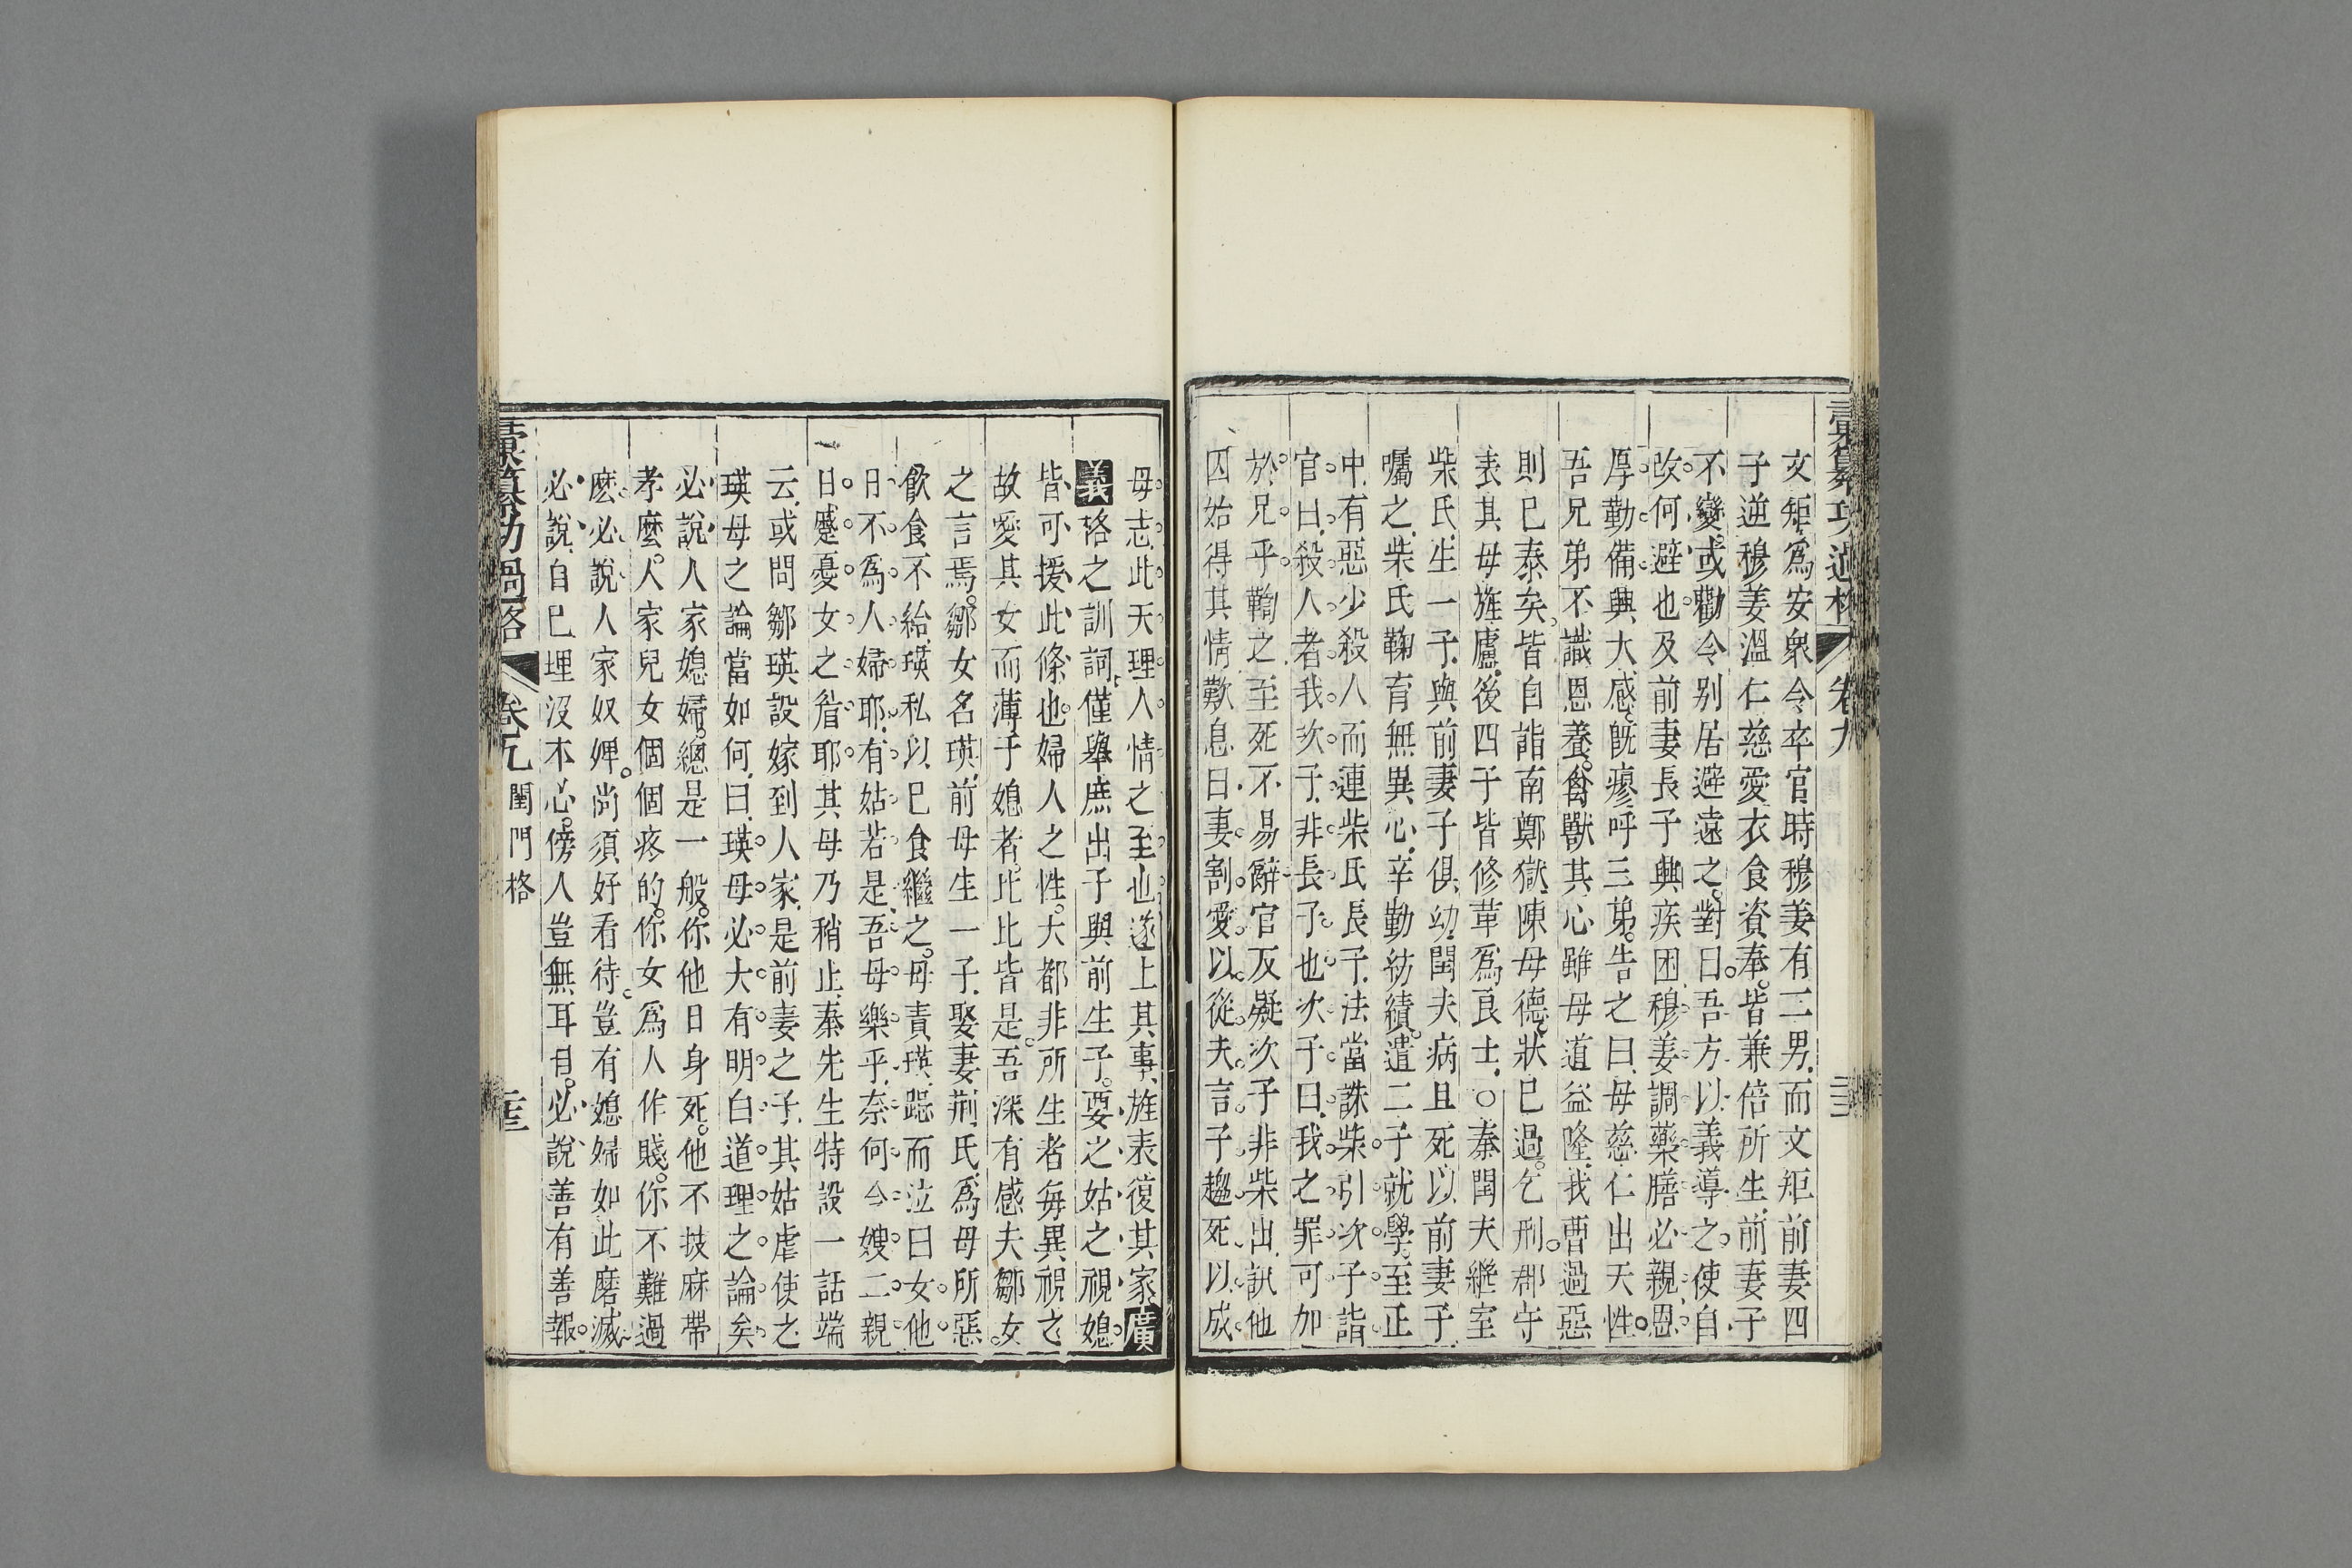 彙纂功過格 卷九
文矩爲安衆令卒官時穆姜有二男而文矩前妻四
子逆穆姜溫仁慈愛衣食資奉皆兼倍所生前妻子
不變或勸令别居避遠之對曰吾方以義導之使自
攺何避也及前妻長子興疾困穆姜調藥膳必親恩
厚勤備興大感旣瘳呼三弟告之曰母慈仁出天性
吾兄弟不識恩養禽獸其心雖母道益隆我曹過惡
則巳泰矣皆自詣南鄭獄陳母德狀巳過乞刑郡守
表其母旌廬後四子皆修革爲良士○秦閏夫繼室
柴氏生一子與前妻子俱幼閏夫病且死以前妻子
囑之柴氏鞠育無異心辛勤紡績遣二子就學至正
中有惡少殺人而連柴氏長子法當誅柴引次子詣
官曰殺人者我次子非長子也次子曰我之罪可加
於兄乎鞫之至死不易辭官反疑次子非柴出訊他
囚始得其情歎息曰妻割愛以從夫言子趨死以成
母志此天理人情之至也遂上其事旌表復其家廣
義格之訓詞僅舉庶出子與前生子要之姑之視媳
皆可援此條也婦人之性大都非所生者每異視之
故愛其女而薄于媳者比比皆是吾深有感夫鄒女
之言焉鄒女名瑛前母生一子娶妻荆氏爲母所惡
飲食不給瑛私以巳食繼之母責瑛跽而泣曰女他
日不爲人婦耶有姑若是吾母樂乎奈何今嫂二親
日蹙憂女之眉耶其母乃稍止秦先生特設一話端
云或問鄒瑛設嫁到人家是前妻之子其姑虐使之
瑛母之論當如何曰瑛母必大有明白道理之論矣
必說人家媳婦總是一般你他日身死他不披麻帶
孝麼人家兒女個個疼的你女爲人作賤你不難過
麽必說人家奴婢尚須好看待豈有媳婦如此磨滅
必說自巳埋沒本心傍人豈無耳目必說善有善報
彙纂功過格 卷九 閨門格